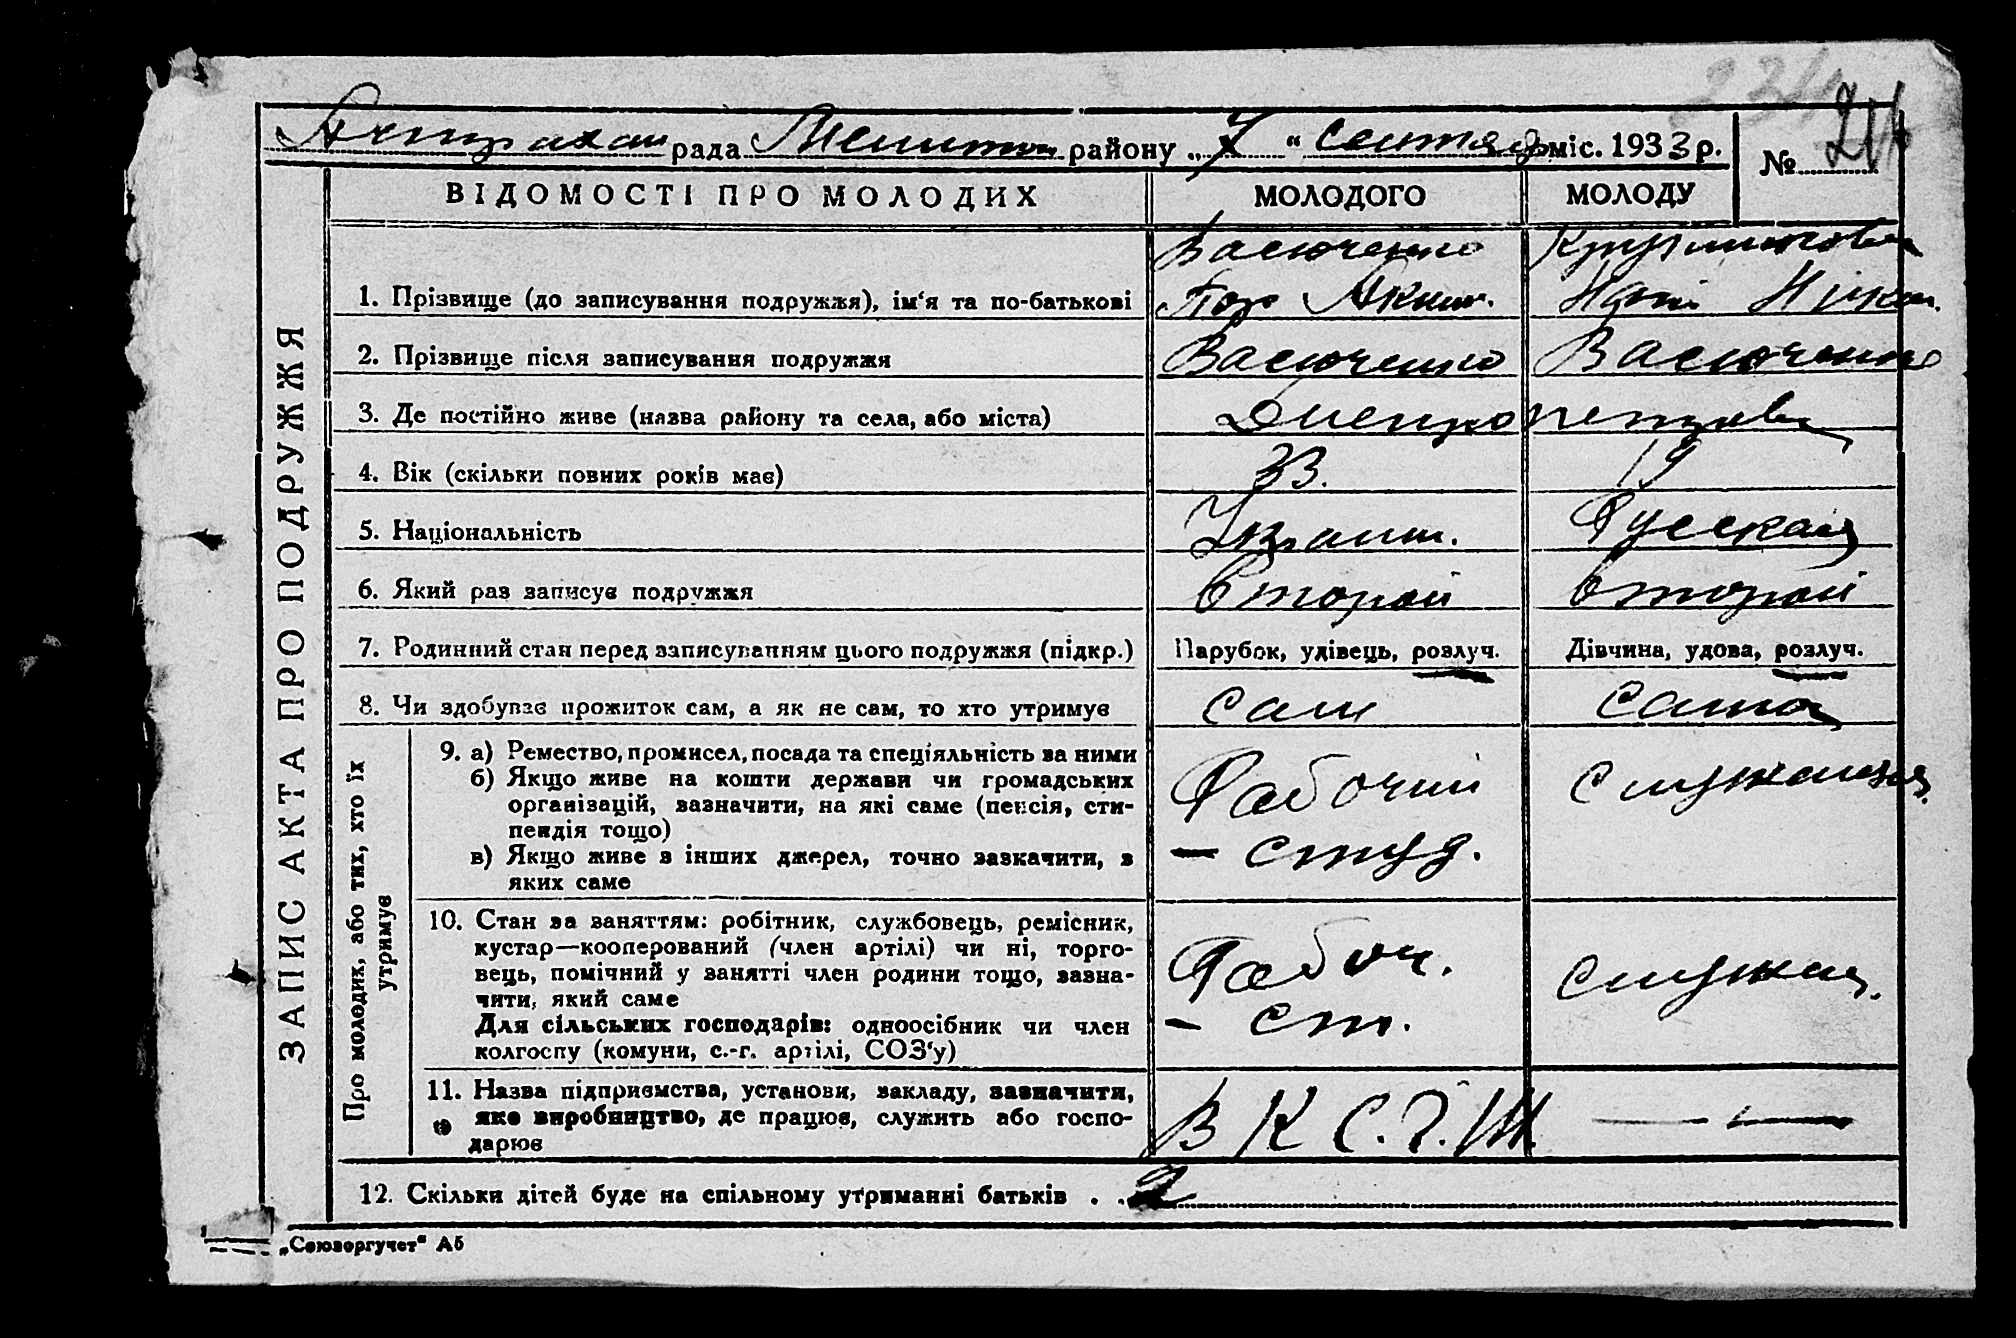 рада района „7“ Сентяб міс. 1933 р.
№
ВІДОМОСТІ ПРО МОЛОДИХ МОЛОДОГО МОЛОДУ
Васюченко
1. Прізвище (до записування подружжя), ім‘я та по-батькові
2. Прізвище після записування подружжя Васюченко Васюченко
3. Де постійно живе (назва району та села, або міста) Днепропетровск
4. Вік (скільки повних років має) 33. 19
5. Національність Украин. Русская
6. Який раз записує подружжя второй второй
7. Родинний стан перед записуванням цього подружжя (підкр.) Парубок, удівець, розлуч. Дівчина, удова, розлуч.
8. Чи здобуває прожиток сам, а як не сам, то хто утримує сам сама
ЗАПИС АКТА ПРО ПОДРУЖЖЯ
Про молодих, або тих, хто їх
утримує
9. а) Ремество, промисел, посада та спеціяльність за ними
б) Якщо живе на кошти держави чи громадських
організацій, зазначити, на які саме (пенсія, сти-
пендія тощо)
в) Якщо живе з інших джерел, точно зазкачити, з
яких саме
Рабочий
– студ.
служащая
10. Стан за заняттям: робітник, службовець, ремісник,
кустар—кооперований (член артілі) чи ні, торго-
вець, помічний у занятті член родини тощо, зазна-
чити, який саме
Для сільських господарів: одноосібник чи член
колгоспу (комуни, с.-г. артілі, СОЗ‘у)
Рабоч.
– ст.
служащ.
11. Назва підприємства, установи, закладу, зазначити,
яке виробництво, де працює, служить або госпо-
дарює
12. Скільки дітей буде на спільному утриманні батьків . . 2
„Союзоргучет“ А5